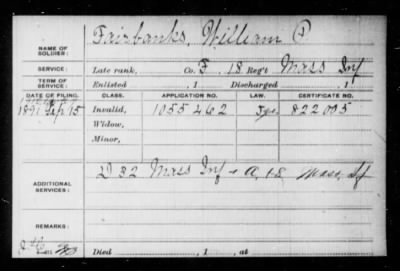 NAME OF SOLDIER: Fairbanks, William P
SERVICE: Late rank, Co. F, 18 Reg't Mass Inf
TERM OF SERVICE: Enlisted , 1 Discharged , 1
DATE OF FILING. CLASS. APPLICATION NO. LAW. CERTIFICATE NO.
1891 Sep 15 Invalid, 1055462 822005
Widow,
Minor,
ADDITIONAL SERVICES: D 32 Mass Inf + A, Mass, Inf
REMARKS:
Died , 1 , at